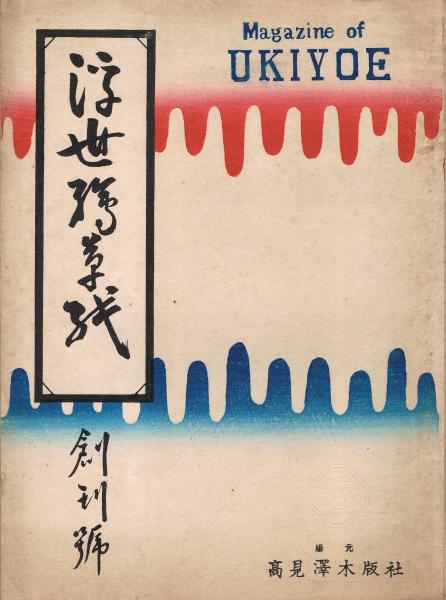 Magazine of
UKIYOE
浮世絵草紙
創刊號
版元
高見澤木版社